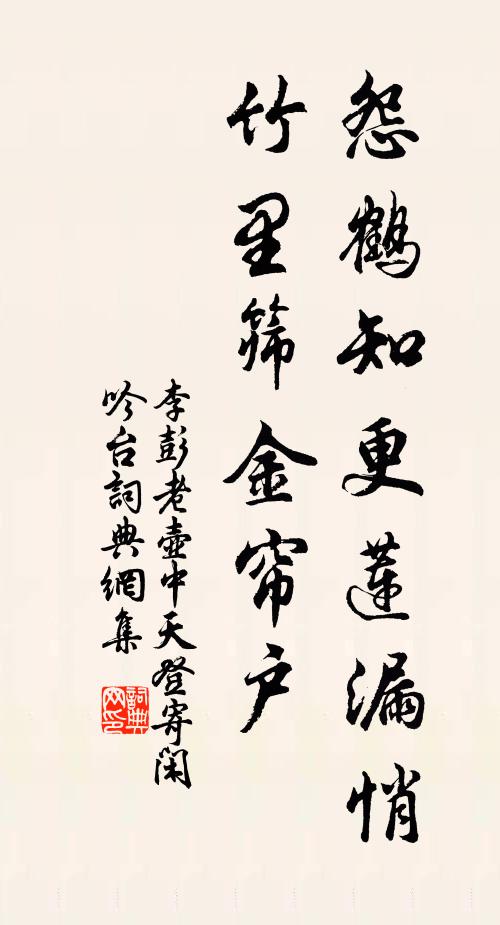 怨鶴知更蓮漏悄
竹里筛金帘户
李彭老壺中天登寄閑
吟台詞典網集
詞典网印